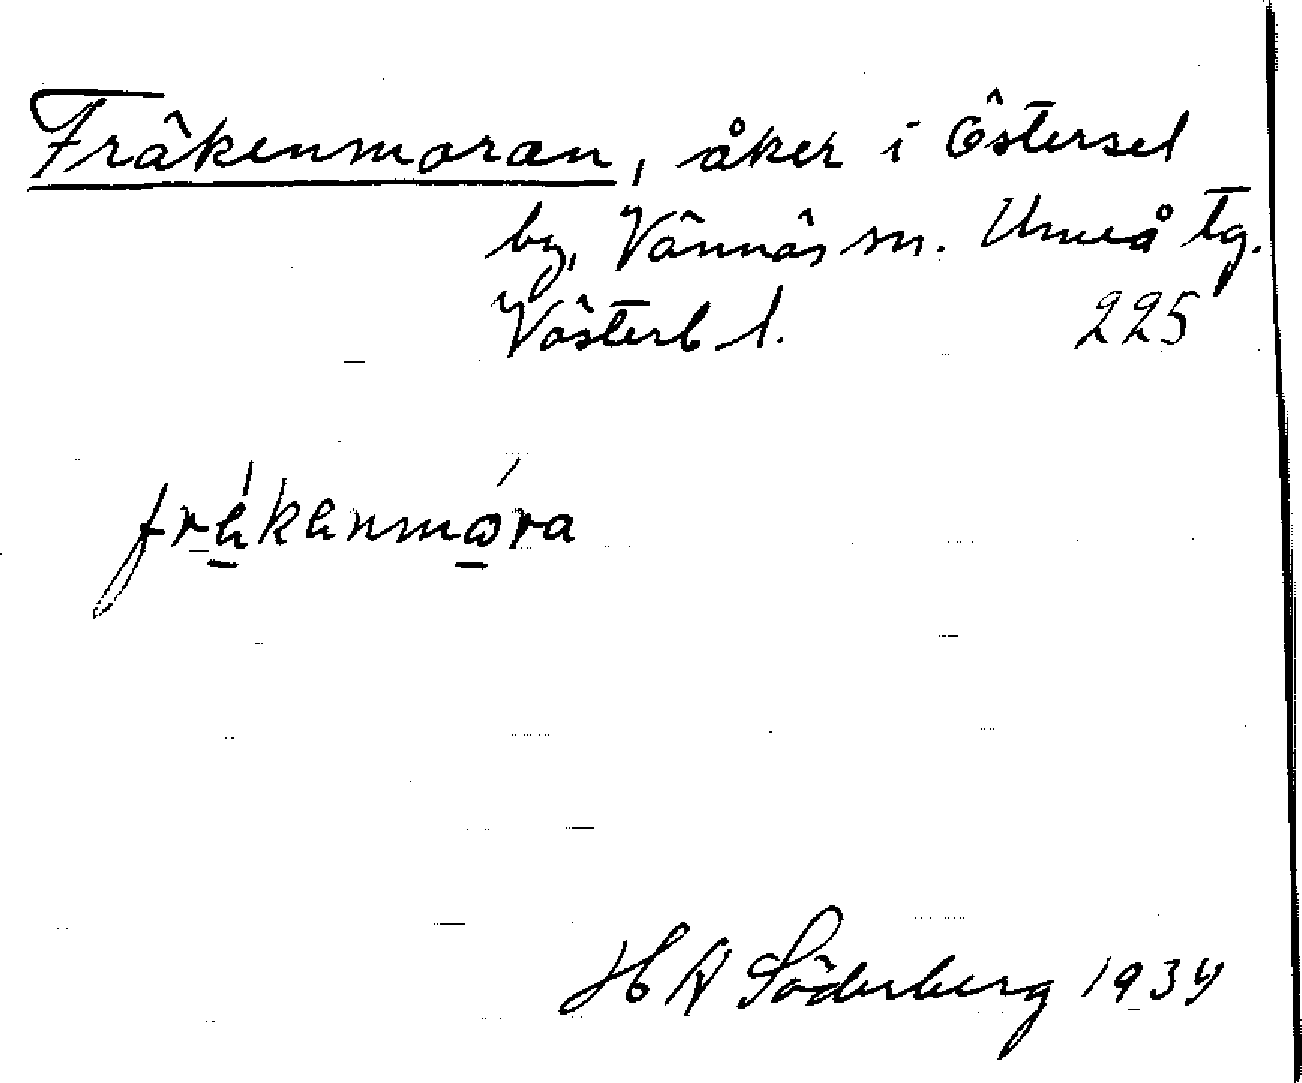 Fräkenmoran, åker i Östersel
by, Vännäs sn. Umeå tg.
Västerb l. 225
fräkenmóra
H A Söderberg 1934